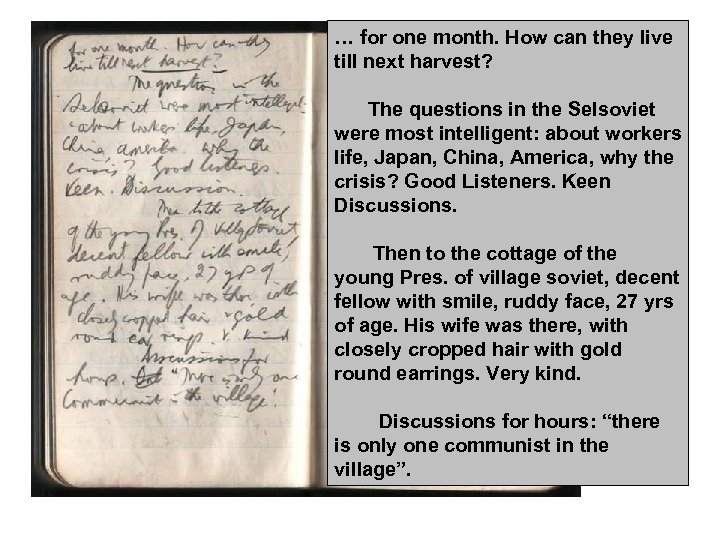 for one month. How can they
live till next harvest?
The questions in the
Selsoviet were most intelligent:
about workers life, Japan,
China, America. Why the
crisis? Good listeners.
Keen. Discussion.
Then to the cottage
of the young Pres. of village Soviet,
decent fellow with smile,
ruddy face, 27 yrs of
age. His wife was there with
closely cropped hair & gold
round ear rings. V. kind
Discussions for
hours. "There is only one
Communist in the village".
… for one month. How can they live
till next harvest?
The questions in the Selsoviet
were most intelligent: about workers
life, Japan, China, America, why the
crisis? Good Listeners. Keen
Discussions.
Then to the cottage of the
young Pres. of village soviet, decent
fellow with smile, ruddy face, 27 yrs
of age. His wife was there, with
closely cropped hair with gold
round earrings. Very kind.
Discussions for hours: “there
is only one communist in the
village”.